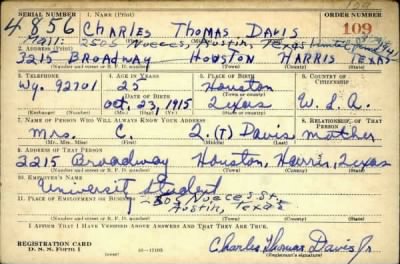 SERIAL NUMBER 1. NAME (Print) ORDER NUMBER
4856 CHARLES THOMAS DAVIS 109
Mail: 2505 Nueces, Austin, Texas until June 1941
2. ADDRESS (Print)
3215 BROADWAY HOUSTON HARRIS TEXAS
(Number and street or R. F. D. number) (Town) (County) (State)
3. TELEPHONE 4. AGE IN YEARS 5. PLACE OF BIRTH 6. COUNTRY OF CITIZENSHIP
Wy. 92701 25 Houston
DATE OF BIRTH
Oct. 23, 1915 Texas U. S. A.
(Exchange) (Number) (Mo.) (Day) (Yr.) (State or country)
7. NAME OF PERSON WHO WILL ALWAYS KNOW YOUR ADDRESS 8. RELATIONSHIP OF THAT PERSON
Mrs. C. (T) Davis mother
(Mr., Mrs., Miss) (First) (Middle) (Last)
9. ADDRESS OF THAT PERSON
3215 Broadway Houston, Harris, Texas
(Number and street or R. F. D. number) (Town) (County) (State)
10. EMPLOYER'S NAME
Universit Student
11. PLACE OF EMPLOYMENT OR BUSINESS
2505 Nueces St.
Austin, Texas
(Number and street or R. F. D. number) (Town) (County) (State)
I AFFIRM THAT I HAVE VERIFIED ABOVE ANSWERS AND THAT THEY ARE TRUE.
REGISTRATION CARD
D. S. S. Form 1 Charles Thomas Davis Jr
(Registrant's signature)